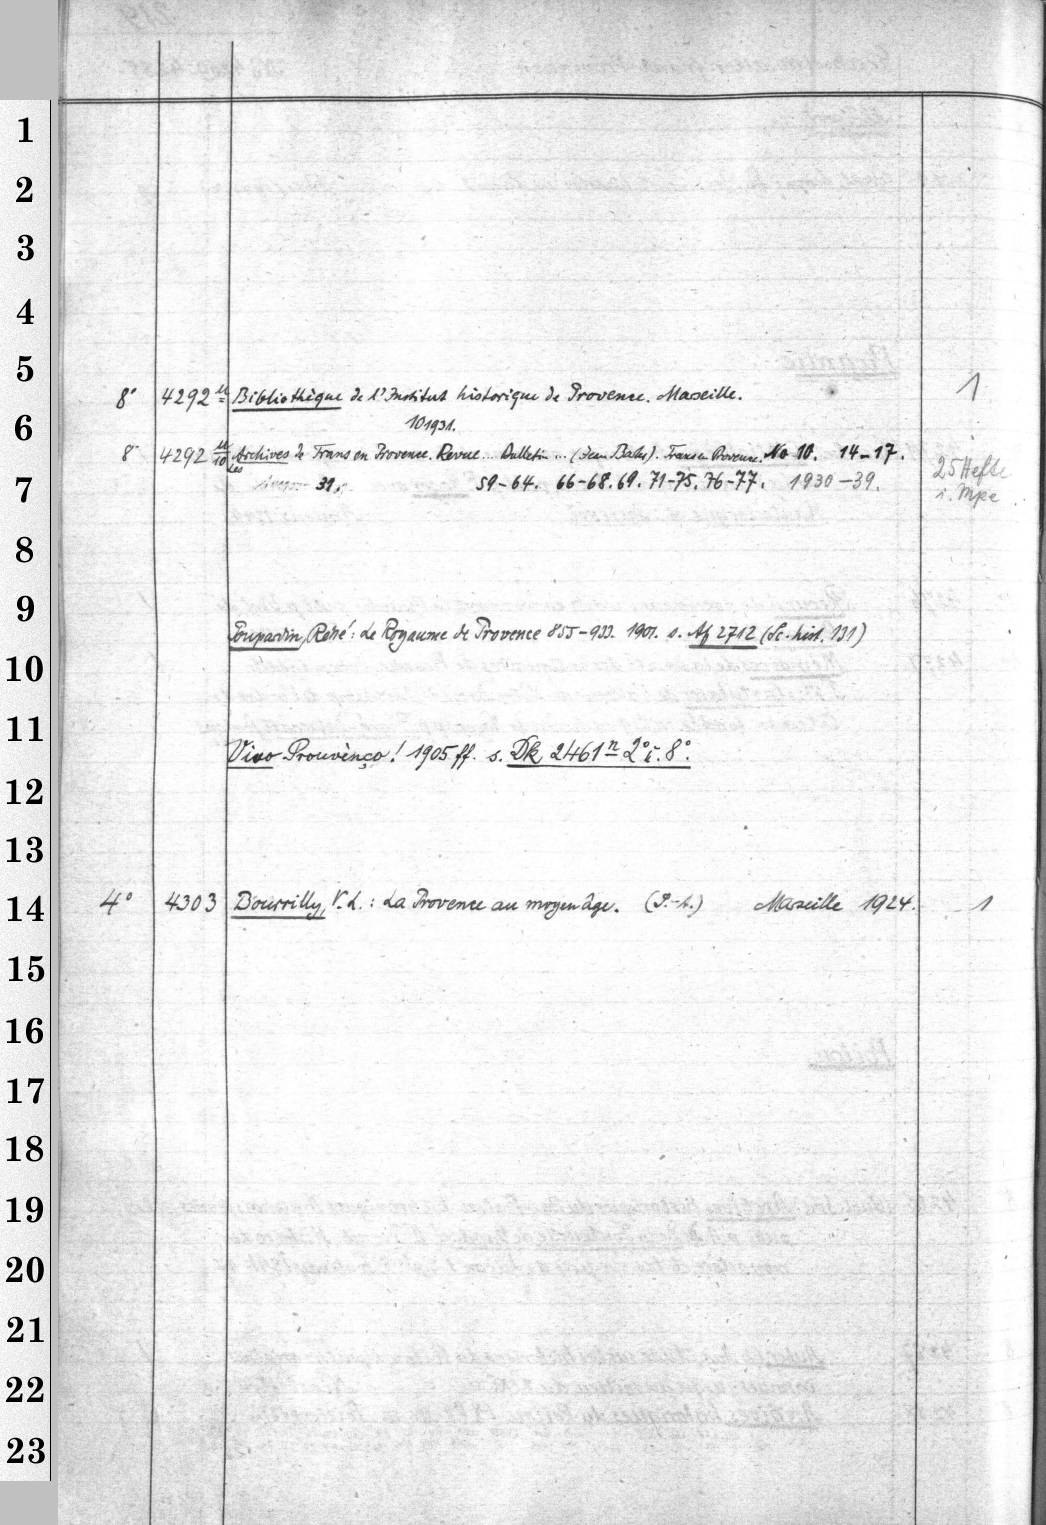 1
2
3
4
5
8° 4292 u Bibliothèque de l'Institut historique de Provence. Marseille. 1
6
10 1931.
8° 4292 u/10 Les Archives de Trans en Provence. Revue ... Bulletin ... (Jean Barles). Trans en Provence. No 10. 14-17. 25 Hefte
7
31. 59-64. 66-68. 69. 71-75. 76-77. 1930-39. i. Mpe
8
9
Poupardin, René: Le Royaume de Provence 855-933. 1901. s. Af 2712 (Sc. hist. 131)
10
11
Vivo Prouvènço! 1905 ff. s. Dk 2461 n 2° u. 8°.
12
13
14 4° 4303 Bourrilly, V.-L.: La Provence au moyen âge. (P.-A.) Marseille 1924. 1
15
16
17
18
19
20
21
22
23